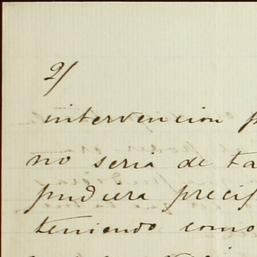 2/
intervencion p
no seria de ta
pudiera precip
teniendo como